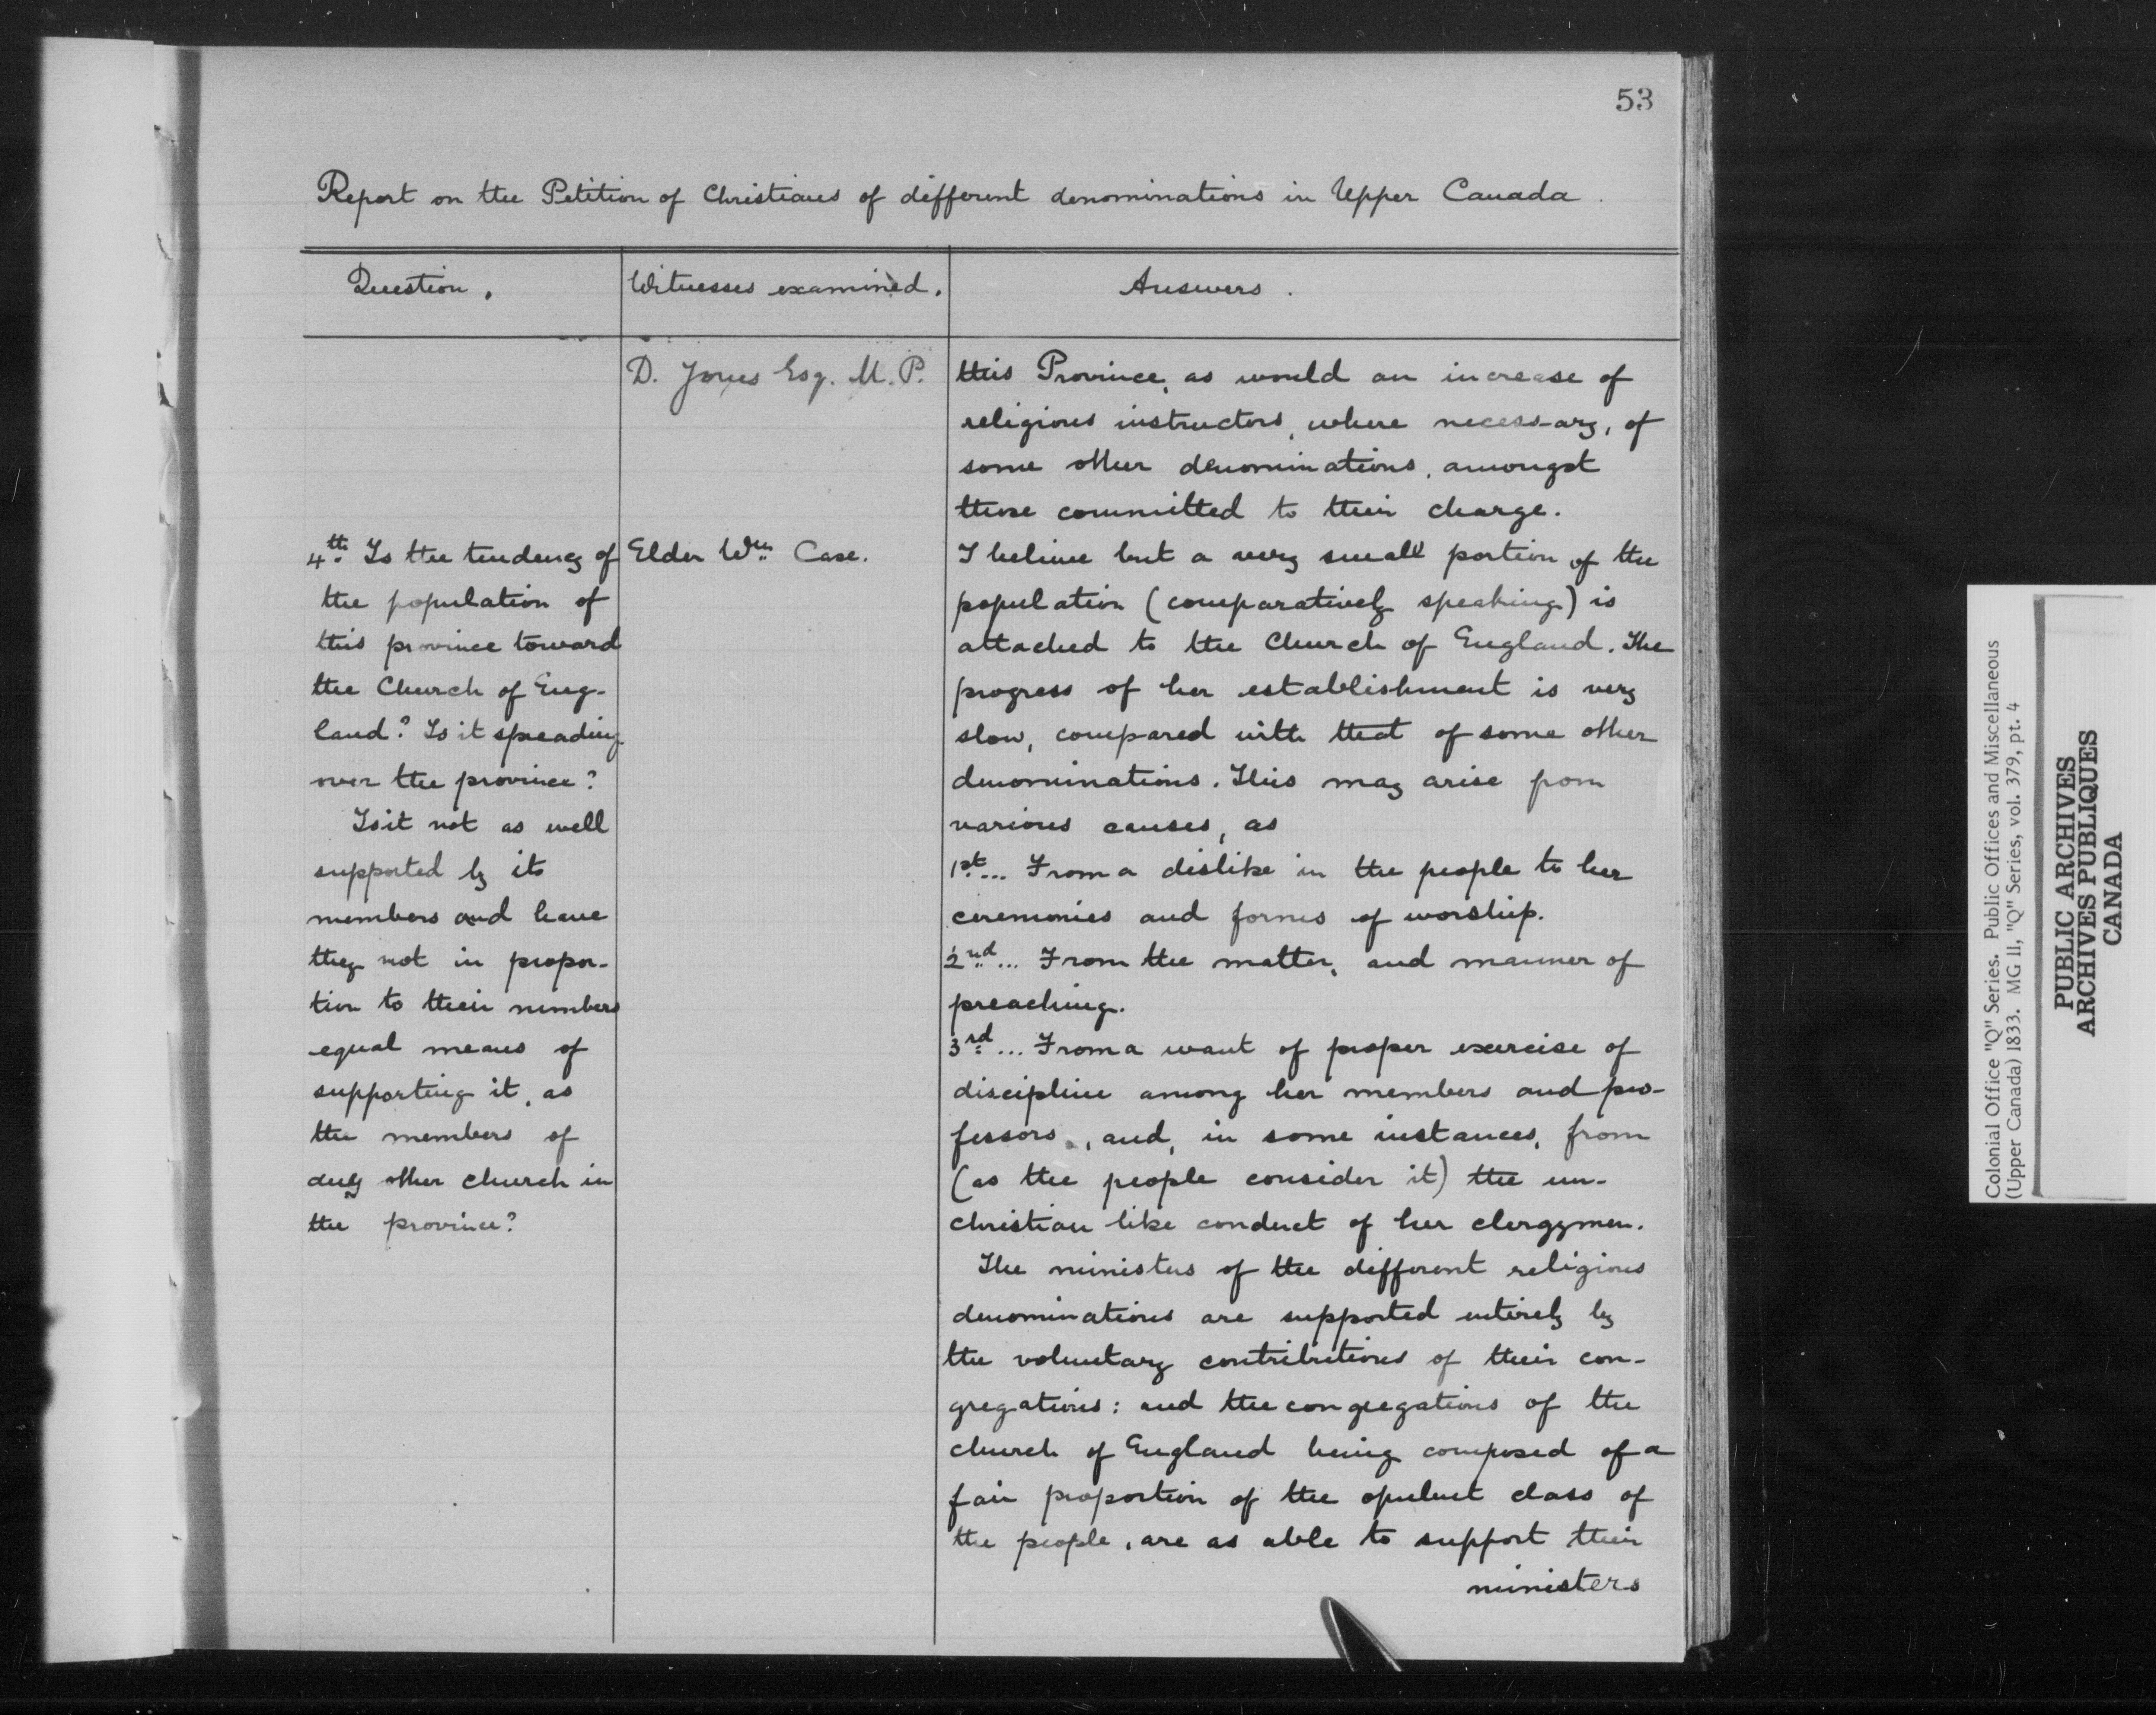 53
Report on the Petition of Christians of different denominations in Upper Canada.
Question.
Witnesses examined.
Answers.
D. Jones Esq. M.P.
this Province, as would an increase of
religious instructors, where necessary, of
some other denominations, amongst
those committed to their charge.
4th. Is the tendency of
the population of
this province toward
the Church of Eng-
land? Is it spreading
over the province?
Is it not as well
supported by its
members and have
they not in propor-
tion to their numbers
equal means of
supporting it, as
the members of
any other church in
the province?
Elder Wm. Case.
I believe but a very small portion of the
population (comparatively speaking) is
attached to the Church of England. The
progress of her establishment is very
slow, compared with that of some other
denominations. This may arise from
various causes, as
1st... From a dislike in the people to her
ceremonies and forms of worship.
2nd... From the matter, and manner of
preaching.
3rd... From a want of proper exercise of
discipline among her members and pro-
fessors, and, in some instances, from
(as the people consider it) the un-
christian like conduct of her clergymen.
The ministers of the different religious
denominations are supported entirely by
the voluntary contributions of their con-
gregations: and the congregations of the
church of England being composed of a
fair proportion of the opulent class of
the people, are as able to support their
ministers
Colonial Office "Q" Series. Public Offices and Miscellaneous
(Upper Canada) 1833. MG 11, "Q" Series, vol. 379, pt. 4
PUBLIC ARCHIVES
ARCHIVES PUBLIQUES
CANADA